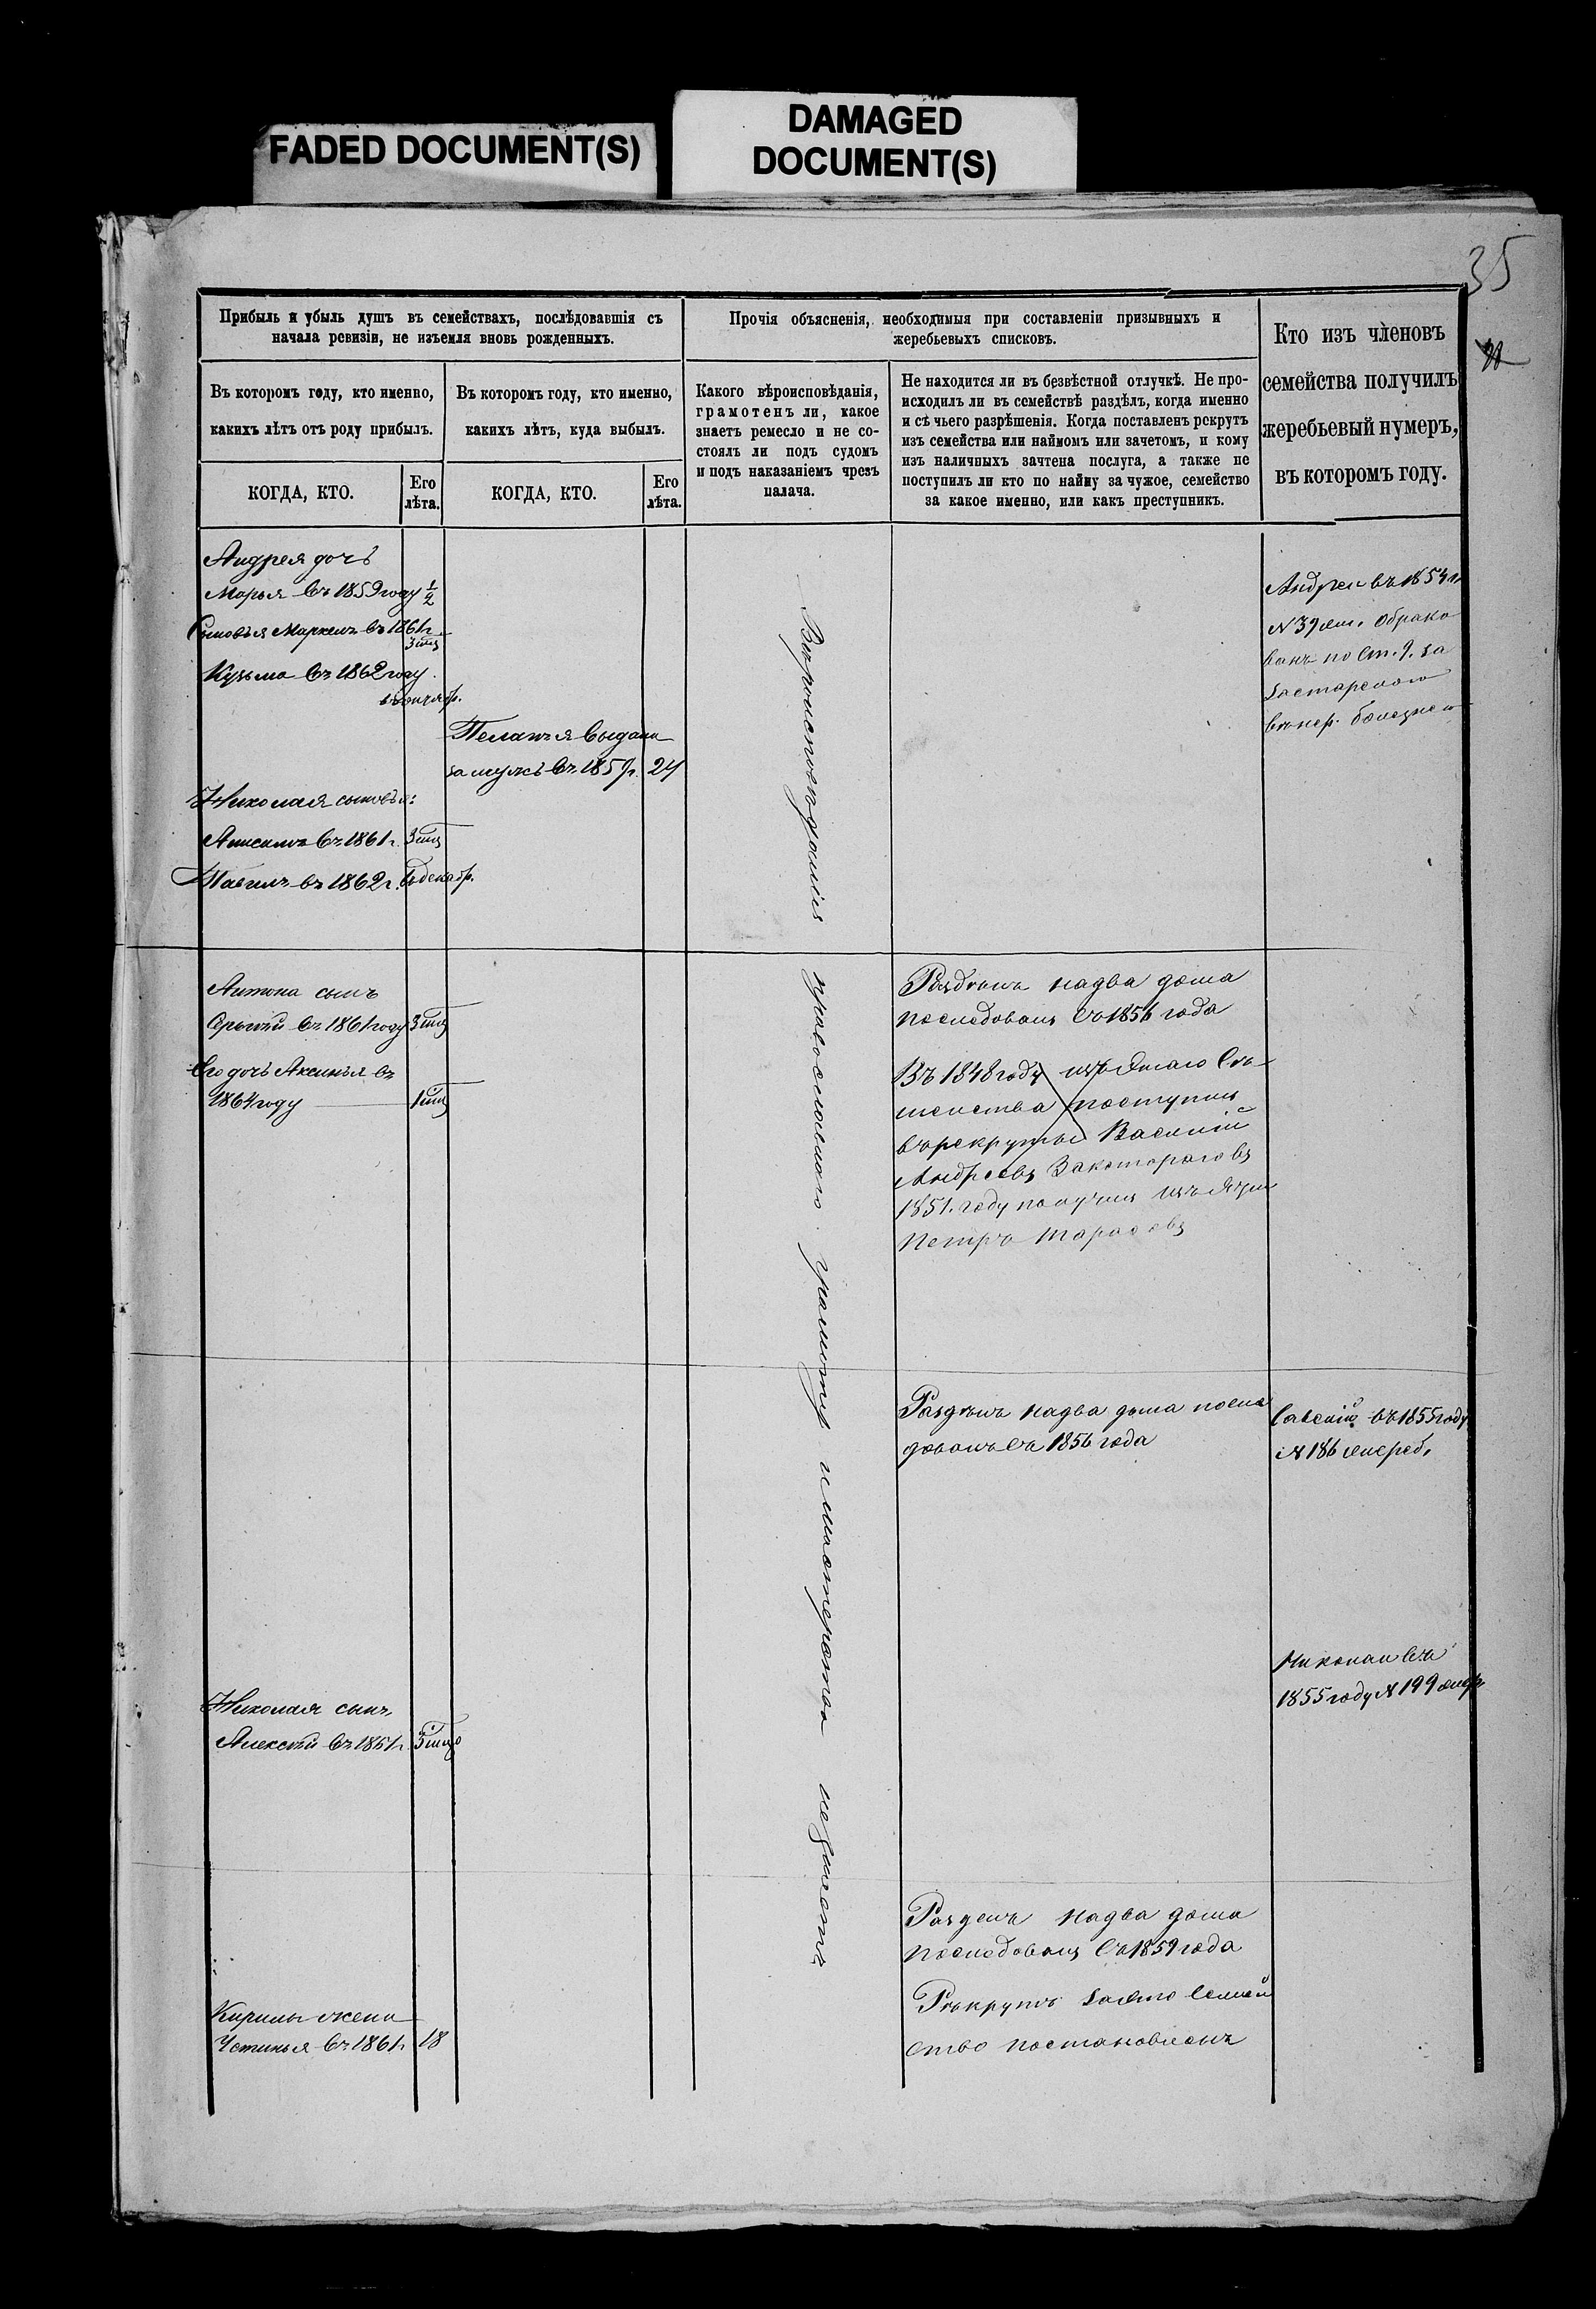 FADED DOCUMENT(S)
DAMAGED
DOCUMENT(S)
35
Прибыль и убыль душъ въ семействахъ, послѣдовавшія съ
начала ревизіи, не изъемля вновь рожденныхъ.
Прочія объясненія, необходимыя при составленіи призывныхъ и
жеребьевыхъ списковъ.
Кто изъ членовъ
семейства получилъ
жеребьевый нумеръ,
въ которомъ году.
Въ которомъ году, кто именно,
какихъ лѣтъ отъ роду прибылъ.
Въ которомъ году, кто именно,
какихъ лѣтъ, куда выбылъ.
Какого вѣроисповѣданія,
грамотенъ ли, какое
знаетъ ремесло и не со-
стоялъ ли подъ судомъ
и подъ наказаніемъ чрезъ
палача.
Не находится ли въ безвѣстной отлучкѣ. Не про-
исходилъ ли въ семействѣ раздѣлъ, когда именно
и съ чьего разрѣшенія. Когда поставленъ рекрутъ
изъ семейства или наймомъ или зачетомъ, и кому
изъ наличныхъ зачтена послуга, а также не
поступилъ ли кто по найму за чужое, семейство
за какое именно, или какъ преступникъ.
КОГДА, КТО.
Его
лѣта.
КОГДА, КТО.
Его
лѣта.
Андрея дочь
Марья въ 1859 году 1/2
Сыновья Маркелъ въ 1861 г.
Кузьма въ 1862 году
Пелагія выдана
за мужъ въ 1857 г. 24
Николая сыновья:
въ 1861 г.
въ 1862 г. въ декабр.
Вѣроисповѣданія
православнаго грамотѣ и мастерства незнаетъ
Андрей въ 1854 г.
N 39 обрако
ванъ по ст. 9. за
болезнею
Антона сынъ
въ 1861 году
Его дочь Аксинья въ
1864 году
Раздѣлъ на два дома
последовалъ съ 1856 года
Въ 1848 году изъ
поступилъ
въ рекруты Василій
Андреевъ за котораго въ
1851. году получилъ
Петръ Тарасовъ
Раздѣлъ на два дома после
довалъ съ 1856 года
въ 1855 году
N 186 жереб.
Николай въ
1855 году N 199
Николая сынъ
Алексѣй въ 1861 г.
Разделъ на два дома
последовалъ съ 1859 года
Рекрутъ за это семей
ство постановленъ
Кирилы жена
Устинья въ 1861 г. 18